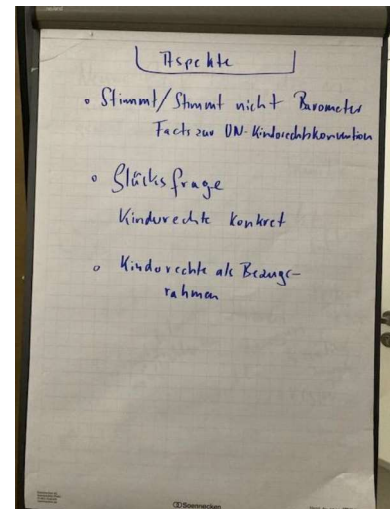 Aspekte
• Stimmt/Stimmt nicht Barometer
Facts zur UN-Kinderechtskonvention
• Glücksfrage
Kinderechte konkret
• Kinderechte als Bezugs-
rahmen
Soennecken